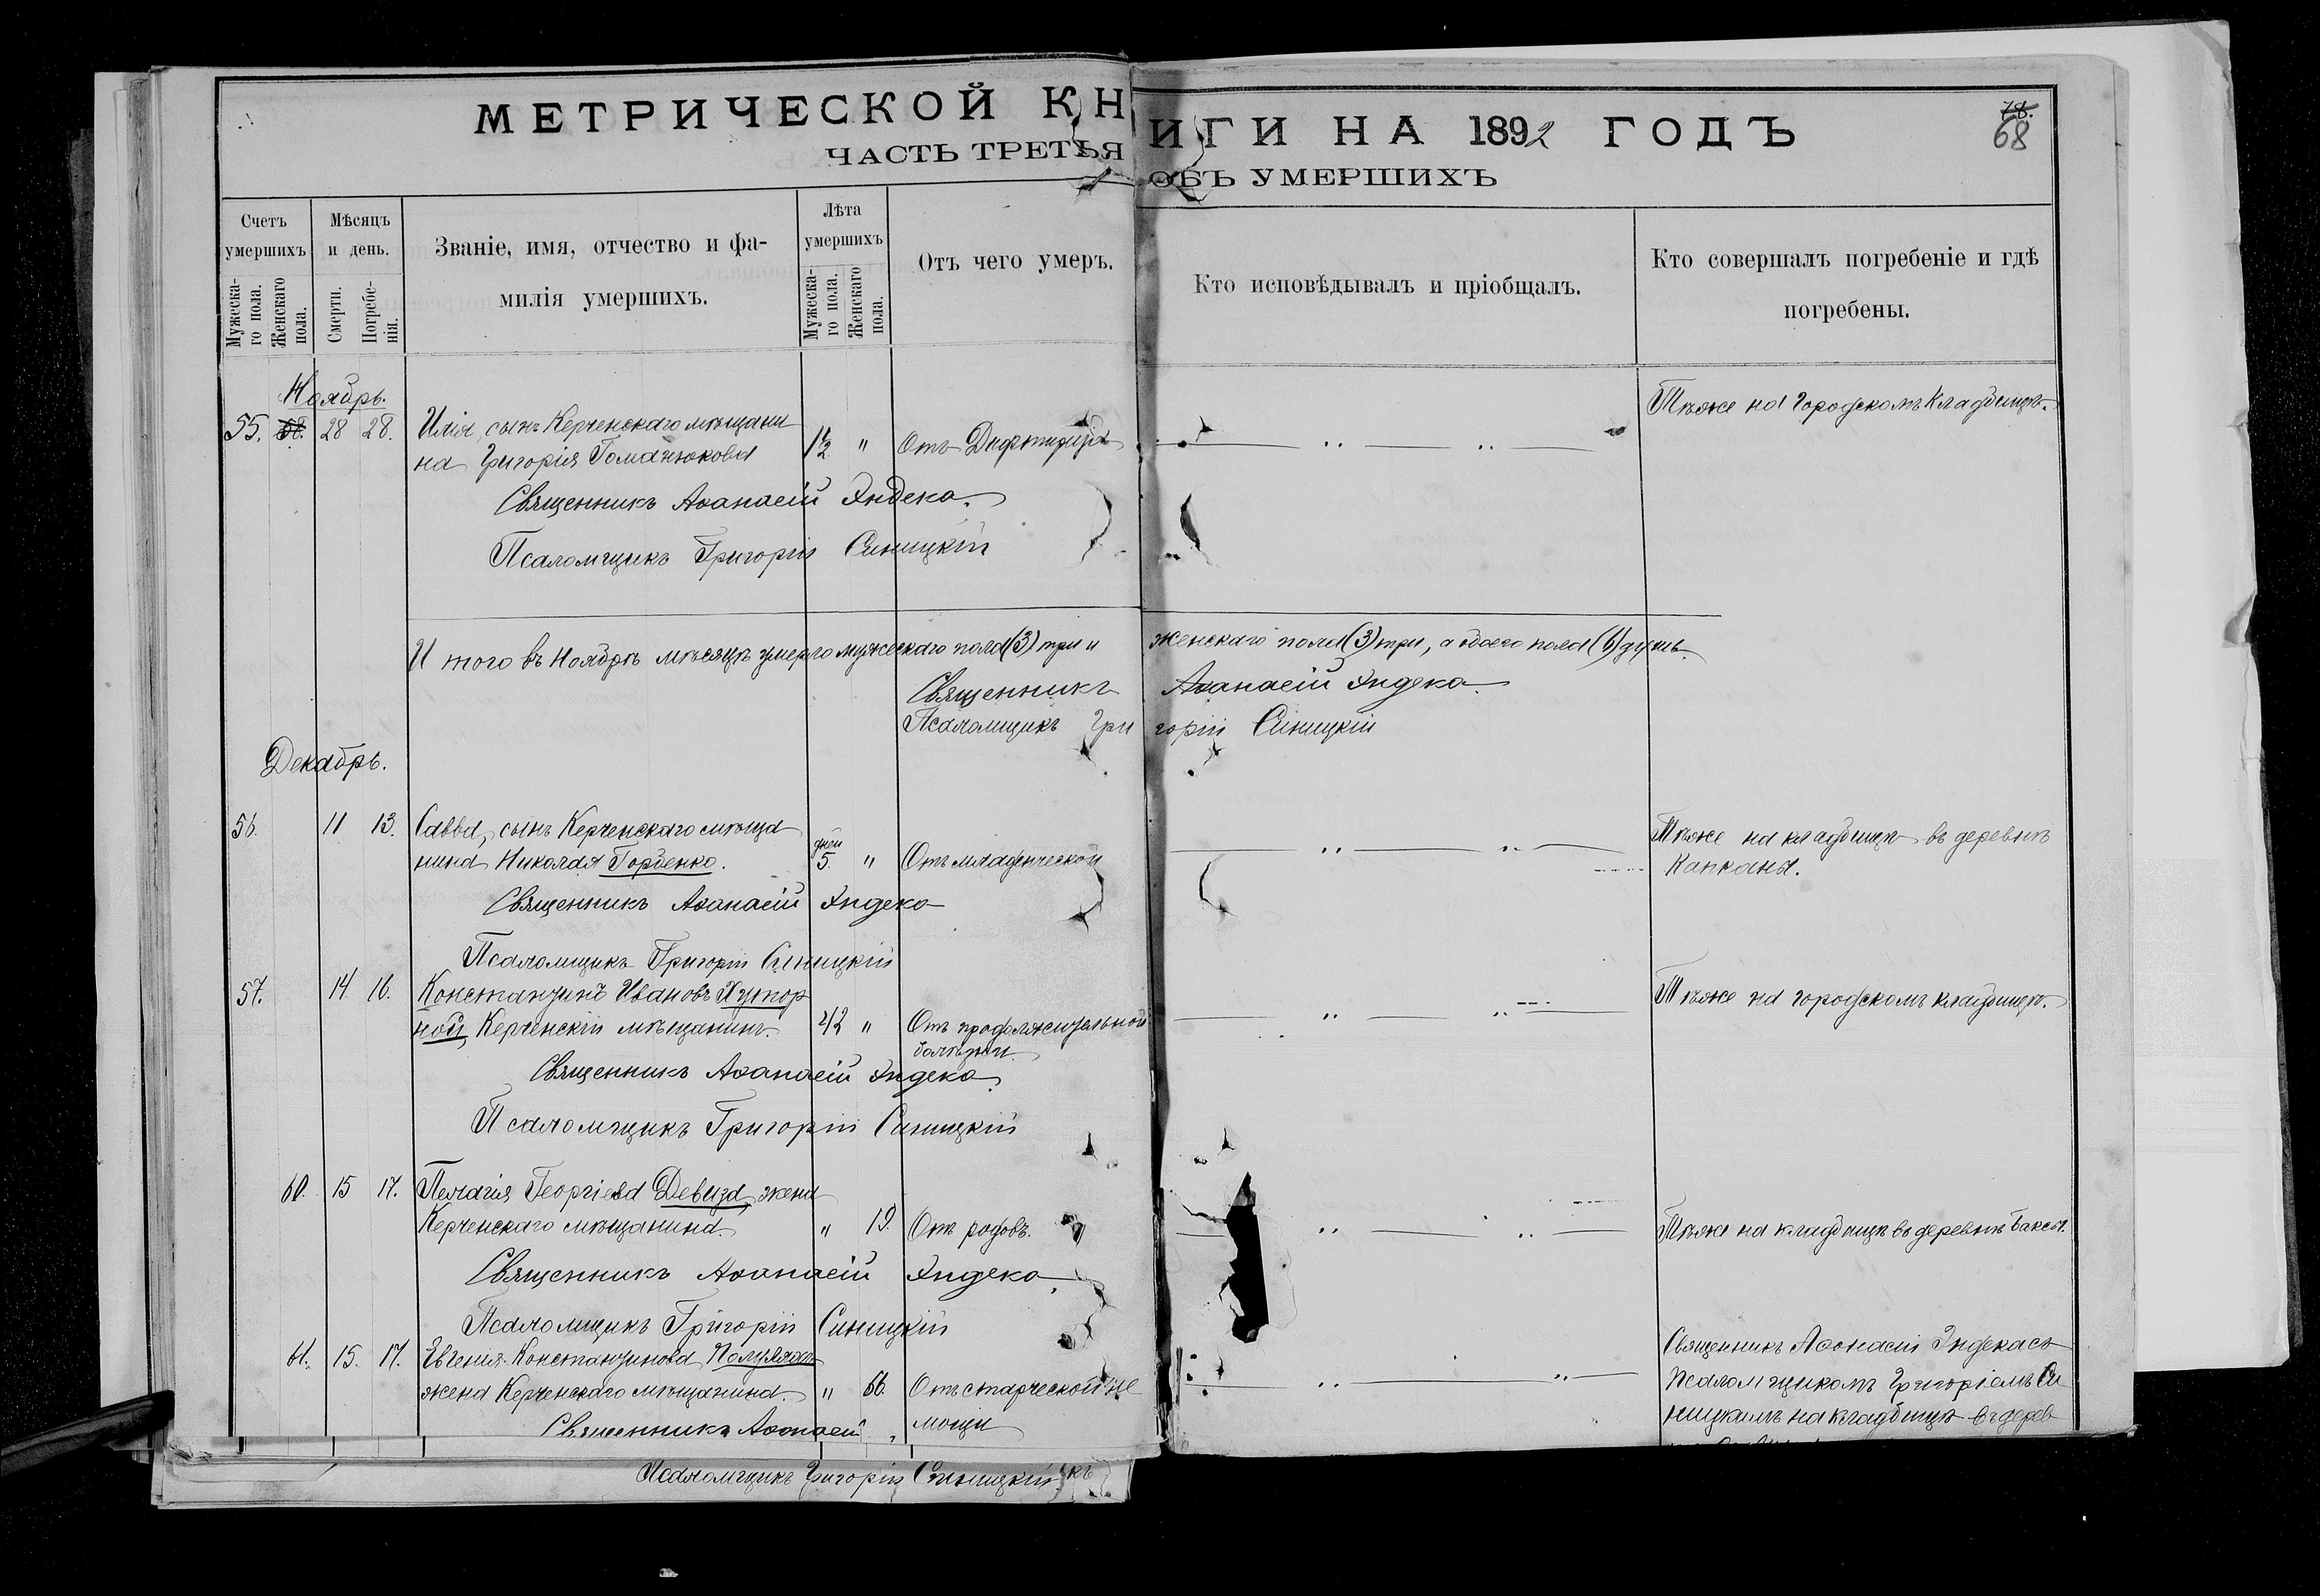 МЕТРИЧЕСКОЙ КНИГИ НА 1892 ГОДЪ
78.
68
ЧАСТЬ ТРЕТЬЯ ОБЪ УМЕРШИХЪ
Счетъ умершихъ
Мужеска-го пола.
Женскаго пола.
Мѣсяцъ и день.
Смерти.
Погребе-нія.
Званіе, имя, отчество и фа-
милія умершихъ.
Лѣта умершихъ
Мужеска-го пола.
Женскаго пола.
Отъ чего умеръ.
Кто исповѣдывалъ и пріобщалъ.
Кто совершалъ погребеніе и гдѣ
погребены.
Ноябрь.
55. 28 28. Илія, сынъ Керченскаго мѣщани
на Григорія 1½ " Отъ Дифтерита
Тѣже на Городскомъ Кладбищѣ.
Священникъ Аѳанасій Индека.
Псаломщикъ Григорій Синицкій
И того въ Ноябрѣ мѣсяцѣ умерло мужескаго пола (3) три " женскаго пола (3) три, а обоего пола (6) душъ.
Священникъ Аѳанасій Индека.
Псаломщикъ Григорій Синицкій
Декабрь.
56. 11 13. Савва, сынъ Керченскаго мѣща
нина Николая Горбенко. дней 5. " Отъ младенческой
Тѣже на кладбищѣ въ деревнѣ
Капканы.
Священникъ Аѳанасій Индека
Псаломщикъ Григорій Синицкій
57. 14 16. Константинъ Ивановъ Хутор
ной, Керченскій мѣщанинъ. 42 " Отъ продолжительной
болѣзни.
Тѣже на городскомъ кладбищѣ.
Священникъ Аѳанасій Индека
Псаломщикъ Григорій Синицкій
60. 15 17. Пелагія Георгіева Девиза, жена
Керченскаго мѣщанина. " 19. Отъ родовъ.
Тѣже на кладбищѣ въ деревнѣ Баксы.
Священникъ Аѳанасій Индека.
Псаломщикъ Григорій Синицкій
61. 15. 17. Евгенія Константинова
жена Керченскаго мѣщанина. " 66. Отъ старческой не
мощи
Священникъ Аѳанасій Индека съ
Псаломщикомъ Григоріемъ Си
ницкимъ на кладбищѣ въ дерев
Священникъ Аѳанасій
Псаломщикъ Григорій Синицкій